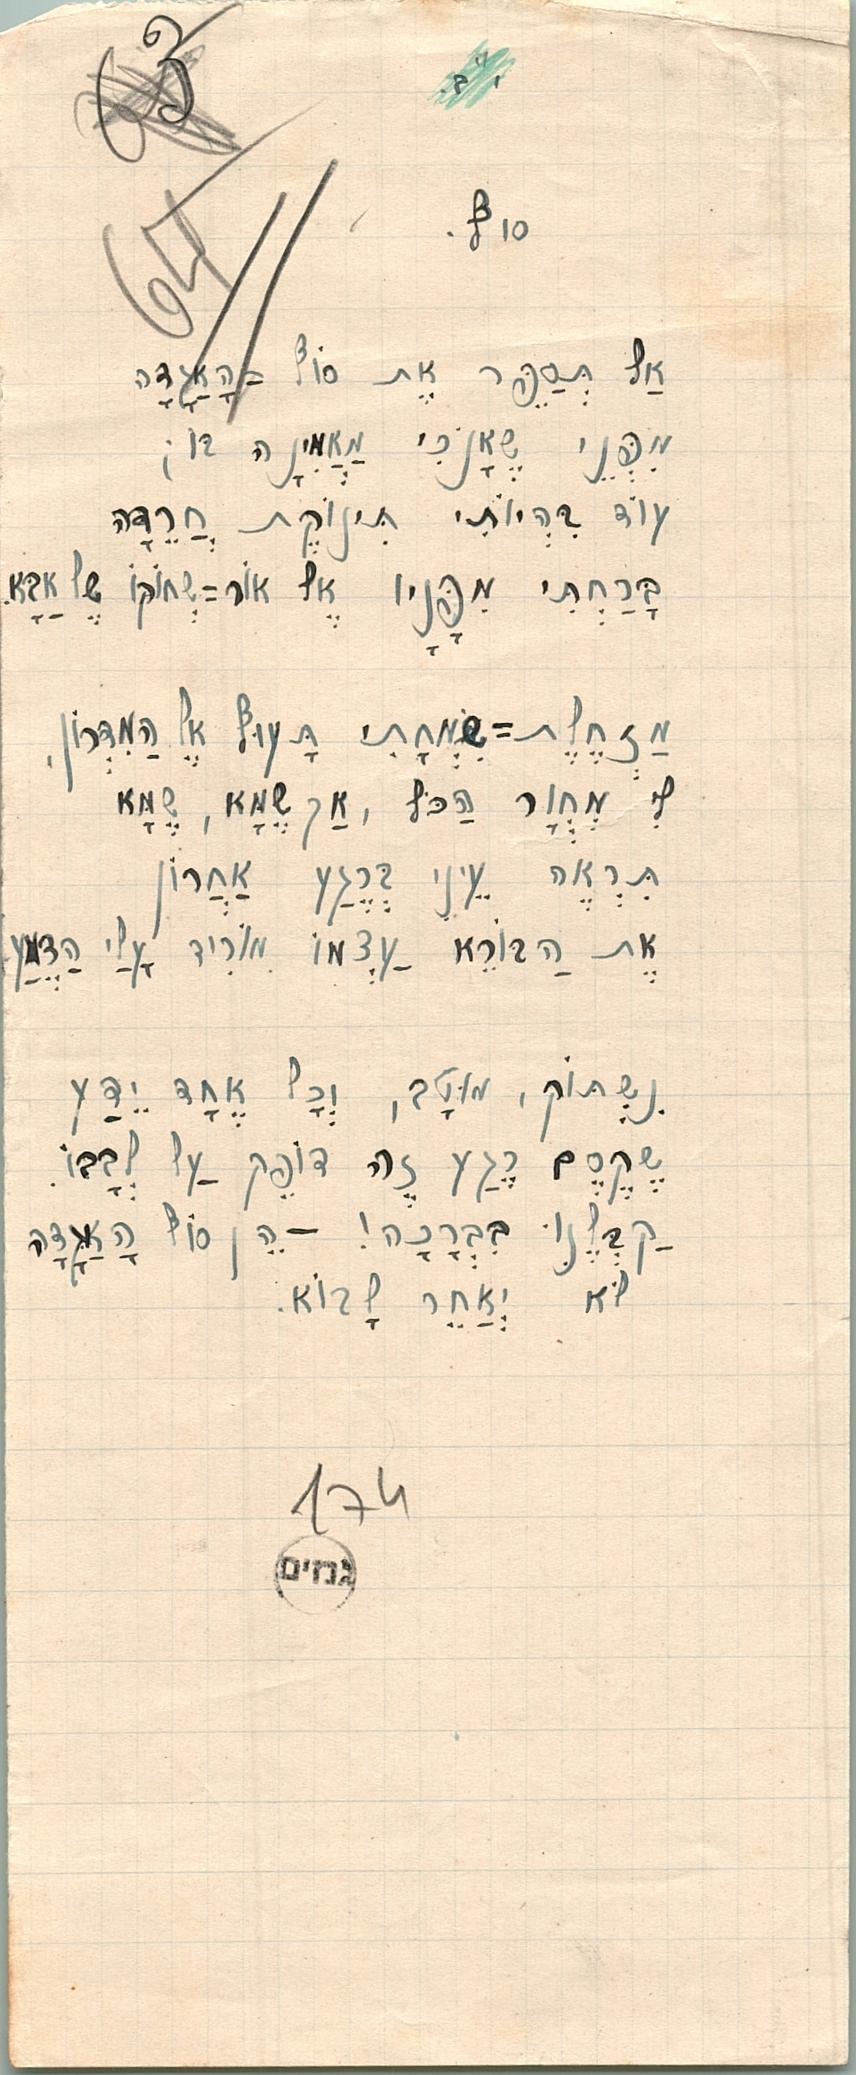 63
י"ב.
64
סוֹף.
אַל תְּסַפֵּר אֶת סוֹף=הָאַגָּדָה
מִפְּנֵי שֶׁאָנֹכִי מַאֲמִינָה בו;
עוֹד בִּהְיוֹתִי תִּינוֹקֶת חֲרֵדָה
בָּרַחְתִּי מִפָּנָיו אֶל אוֹר=שְׂחוֹקוֹ שֶׁל אַבָּא.
מִזְחֶלֶת=שִׂמְחָתִי תָּעוּף אֶל הַמִּדְרוֹן,
לִי מְחֻוָּר הַכֹּל, אַךְ שֶׁמָּא, שֶׁמָּא
תִּרְאֶה עֵינִי בְּרֶגַע אַחֲרוֹן
אֶת הַבּוֹרֵא עַצְמוֹ מוֹרִיד עָלַי הַדֶּמַע.
נִשְׁתּוֹק, מוּטָב, וְכָל אֶחָד יֵדַע
שֶׁקֶּסֶם רֶגַע זֶה דּוֹפֵק עַל לְבָבוֹ.
קַבְּלֶנּוּ בִּבְרָכָה! – הֵן סוֹף הָאַגָּדָה
לֹא יְאַחֵר לָבוֹא.
174
גנזים